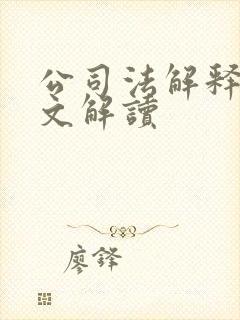 公司法解释
文解讀
廖鋒